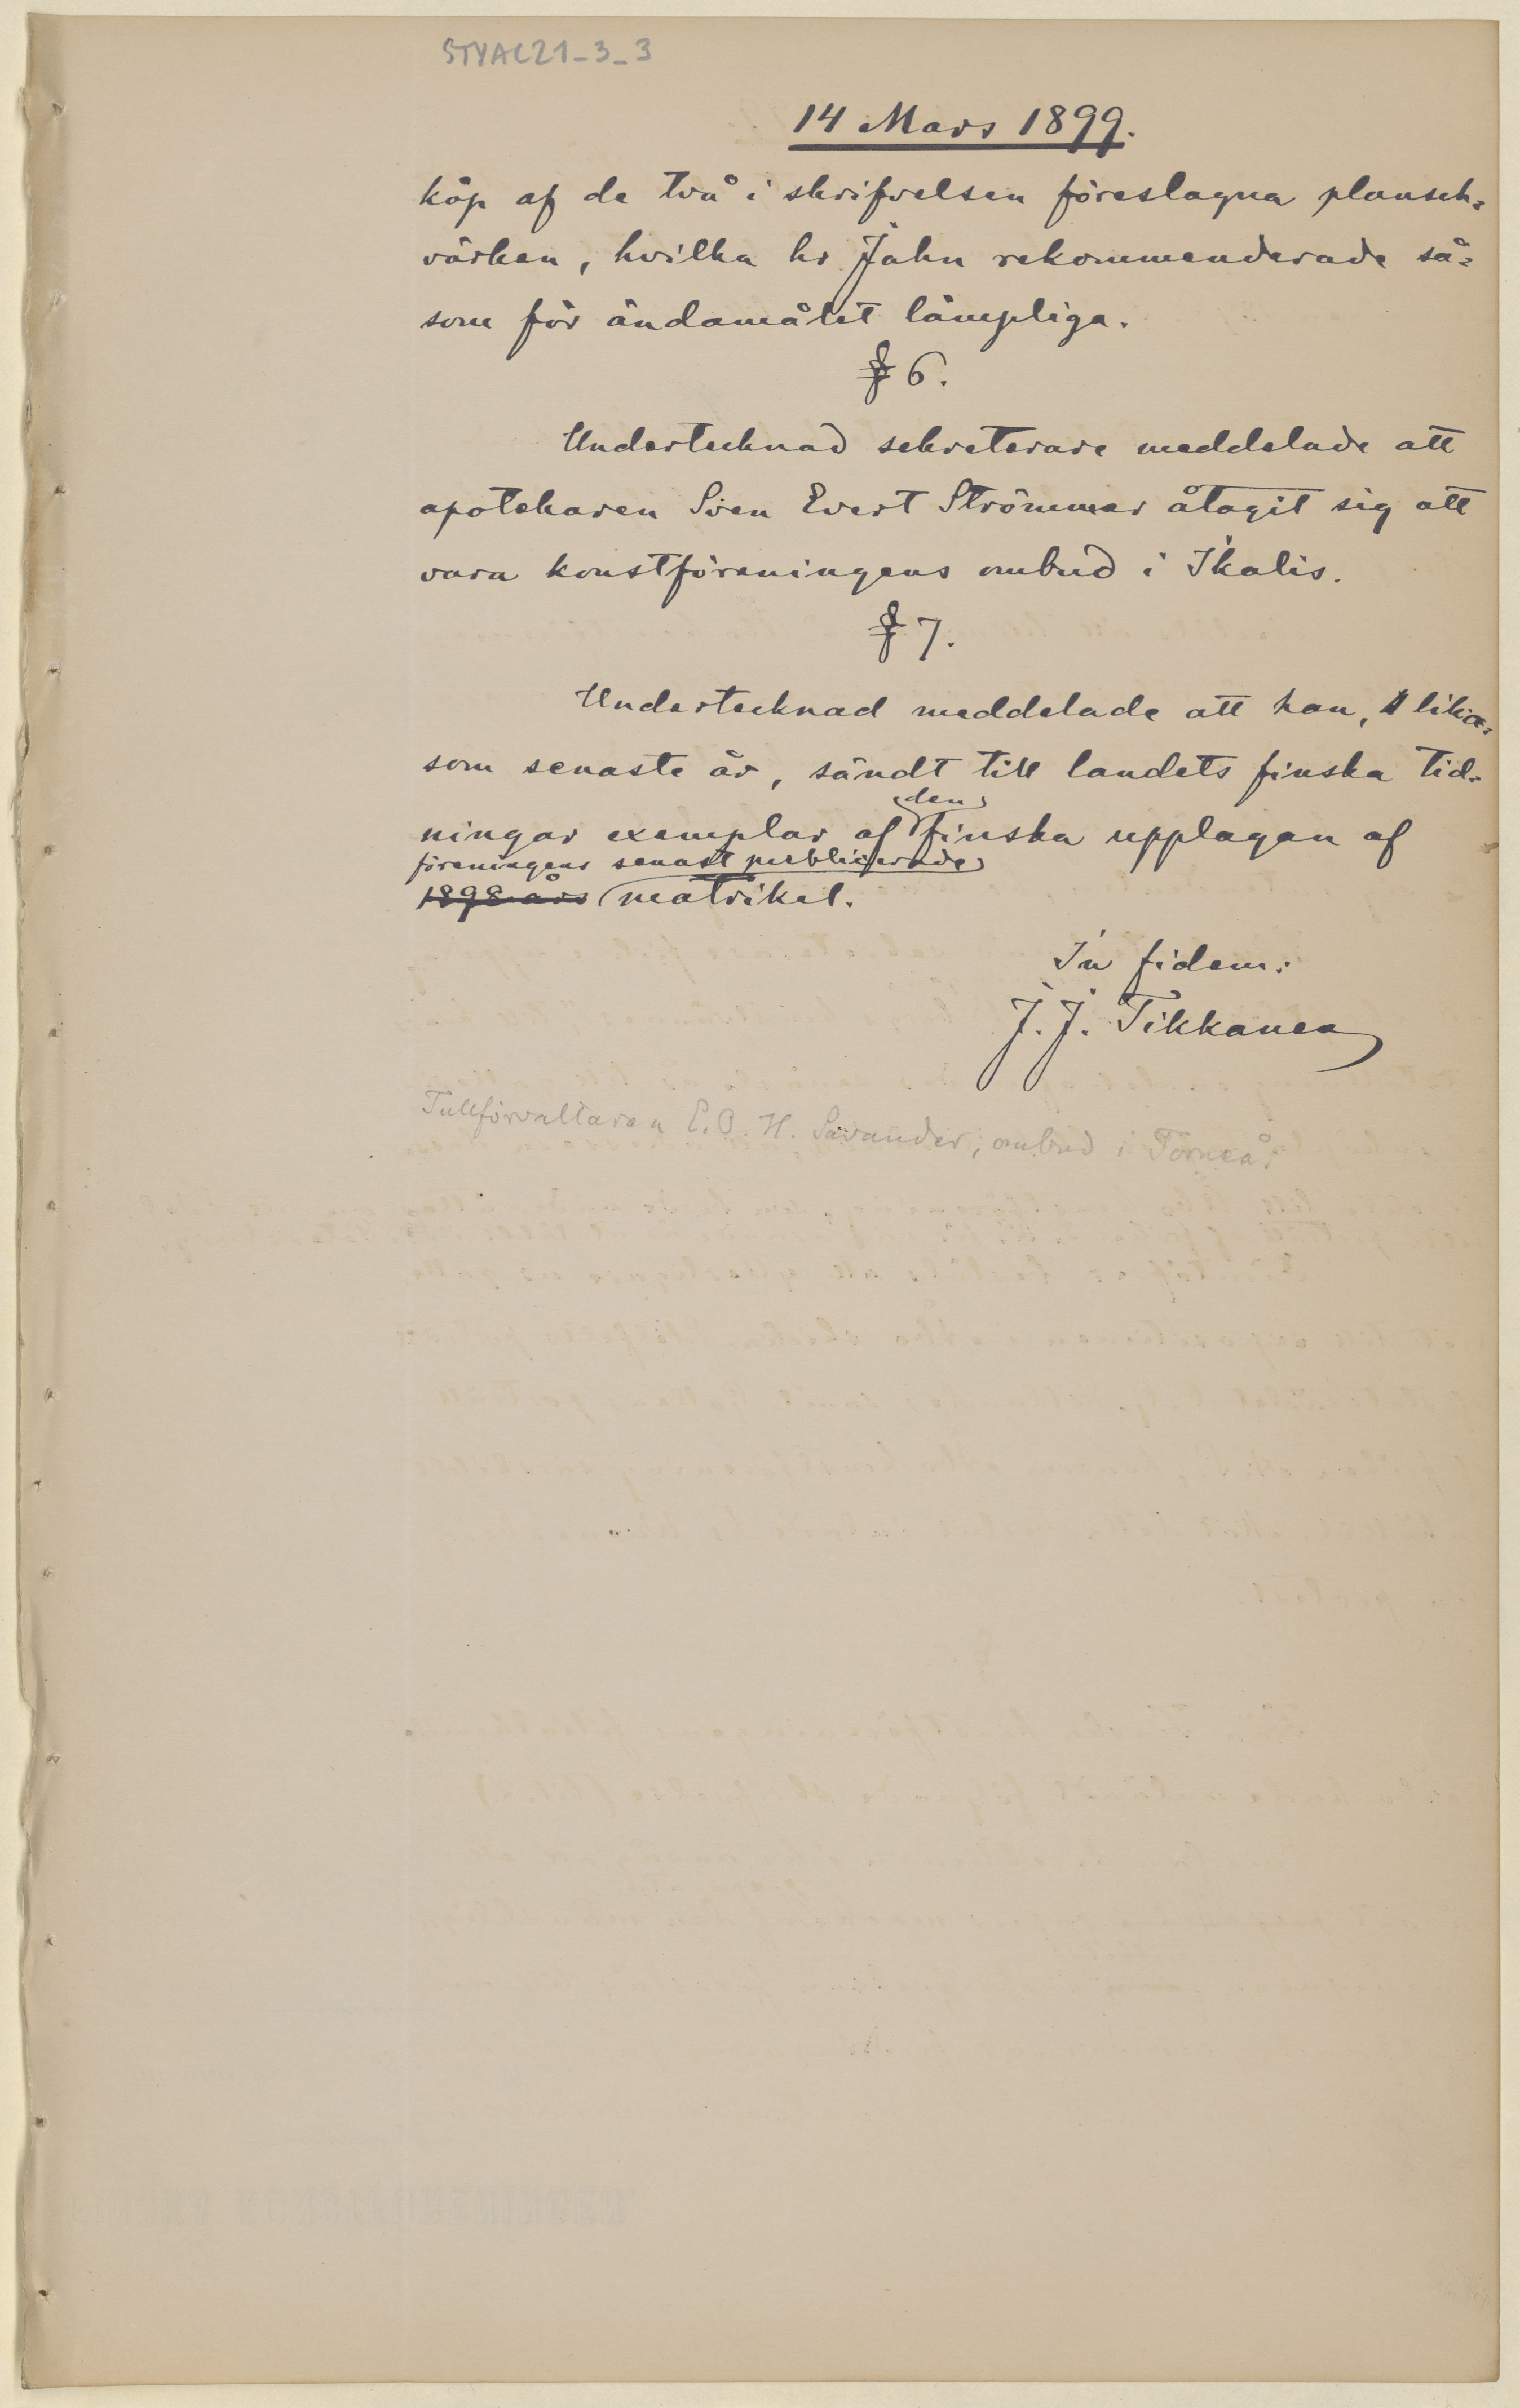 STYAC21_3_3
14 Mars 1899.
köp af de två i skrifvelsen föreslagna plansch-
värken, hvilka hr Jahn rekommenderade så-
som för ändamålet lämpliga.
§ 6.
Undertecknad sekreterare meddelade att
apotekaren Sven Evert Strömmer åtagit sig att
vara konstföreningens ombud i Ikalis.
§ 7.
Undertecknad meddelade att han, lika-
som senaste år, sändt till landets finska tid-
den
ningar exemplar af finska upplagan af
föreningens senast publicerade
1898 års matrikel.
In fidem:
J. J. Tikkanen
Tullförvaltaren E. O. H. Savander, ombud i Torneå.